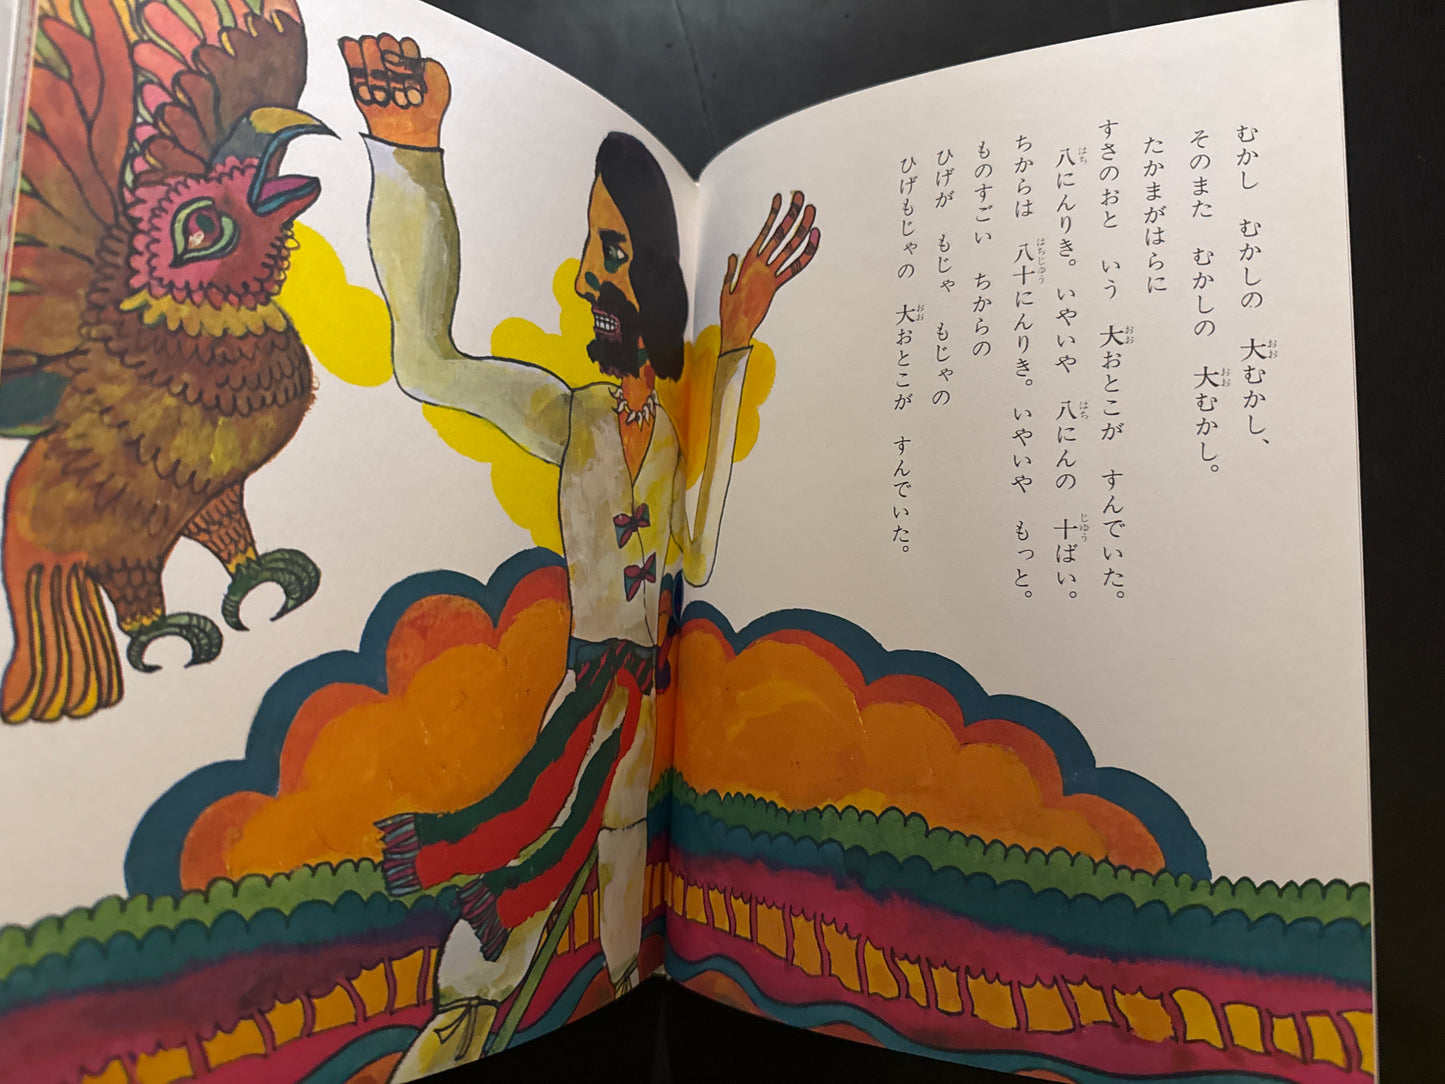 むかし　むかしの　大むかし、
そのまた　むかしの　大むかし。
たかまがはらに
すさのおと　いう　大おとこが　すんでいた。
八にんりき。いやいや　八にんの　十ばい。
ちからは　八十にんりき。いやいや　もっと。
ものすごい　ちからの
ひげが　もじゃ　もじゃの
ひげもじゃの　大おとこが　すんでいた。